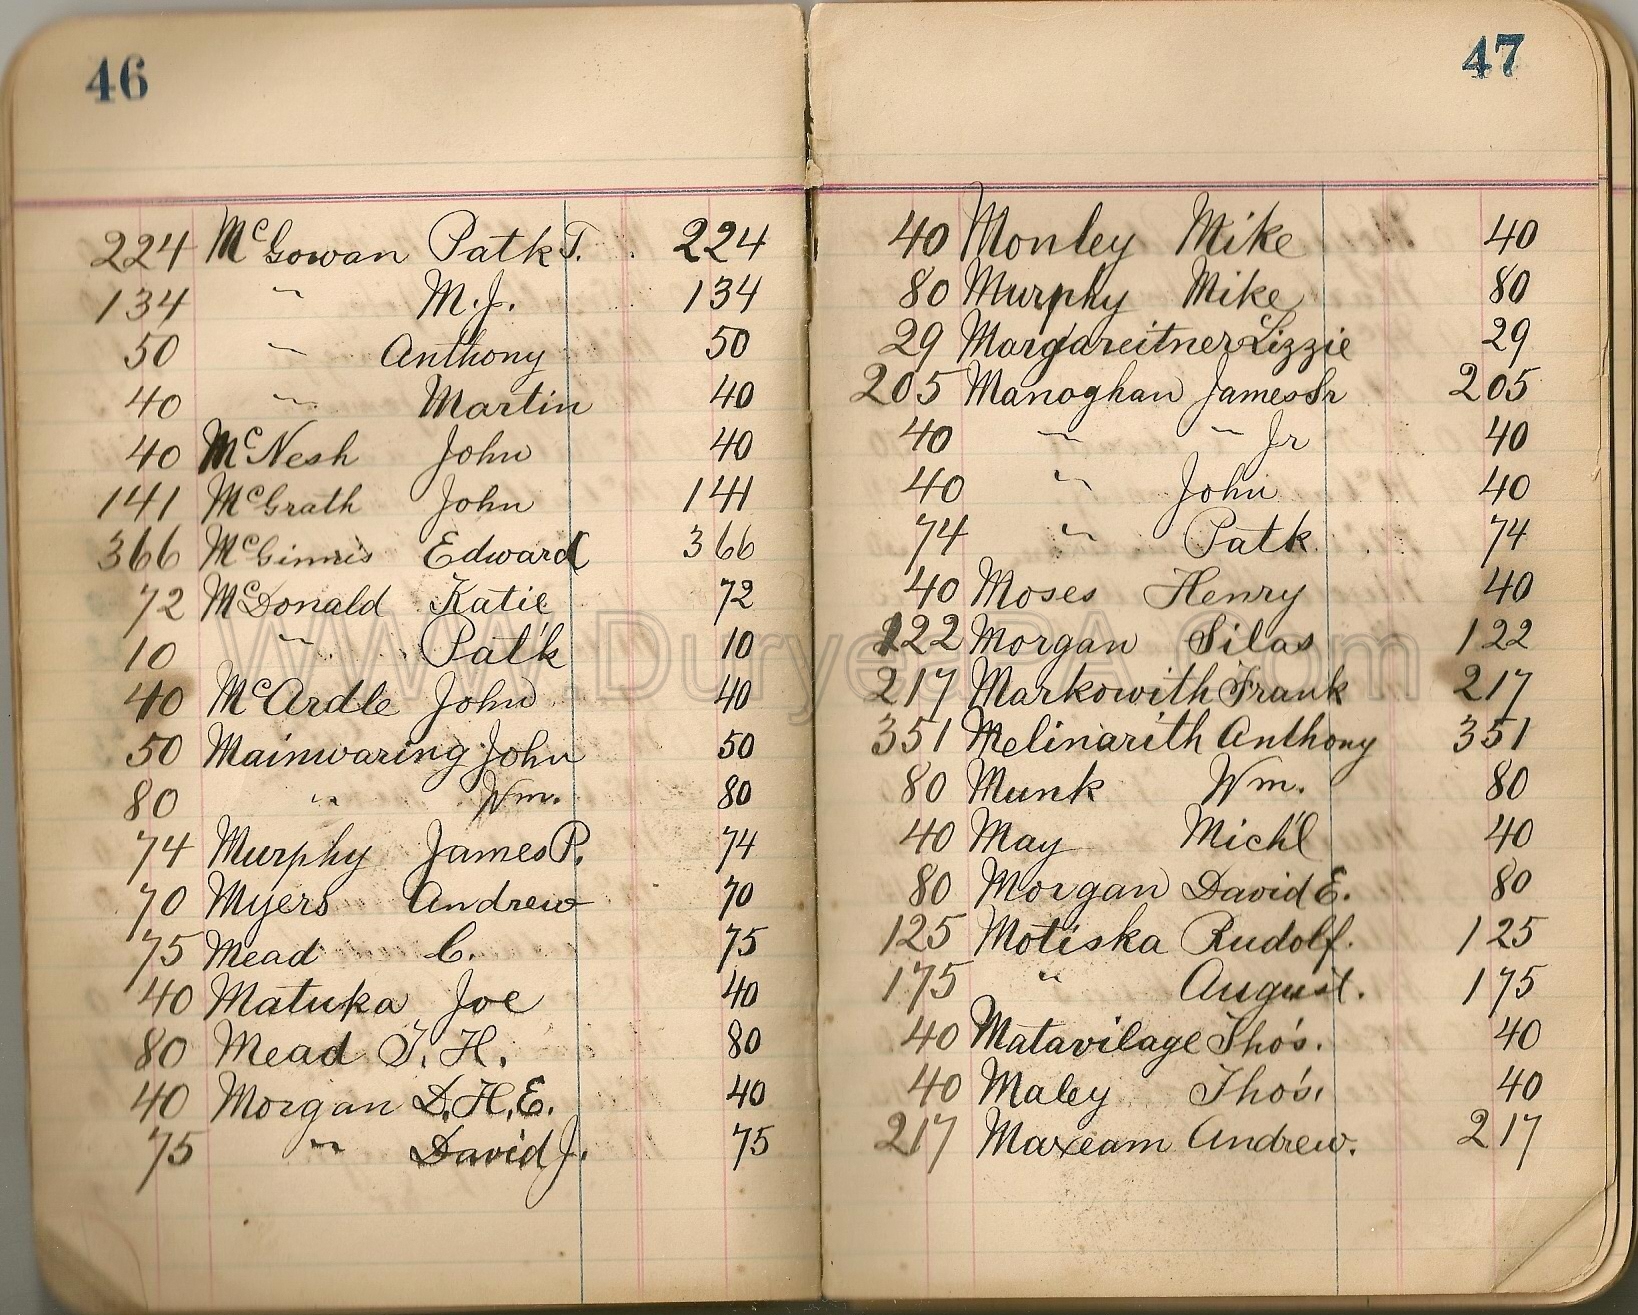 46
224 McGowan Patk T. 224
134 " M.J. 134
50 " Anthony 50
40 " Martin 40
40 McNesh John 40
141 McGrath John 141
366 McGinnis Edward 366
72 McDonald Katie 72
10 " Pat'k 10
40 McArdle John 40
50 Mainwaring John 50
80 " Wm. 80
74 Murphy James P. 74
70 Myers Andrew 70
75 Mead C. 75
40 Matuka Joe 40
80 Mead T. H. 80
40 Morgan D.H.E. 40
75 " David J. 75
47
40 Monley Mike 40
80 Murphy Mike 80
29 Margareitner Lizzie 29
205 Manoghan James Sr 205
40 " " Jr 40
40 " John 40
74 " Patk 74
40 Moses Henry 40
122 Morgan Silas 122
217 Markowith Frank 217
351 Melinarith Anthony 351
80 Munk Wm. 80
40 May Mich'l 40
80 Morgan David E. 80
125 Motiska Rudolf. 125
175 " August. 175
40 Matavilage Tho's. 40
40 Maley Tho's. 40
217 Maxeam Andrew. 217
WWW.DuryeaPA.com